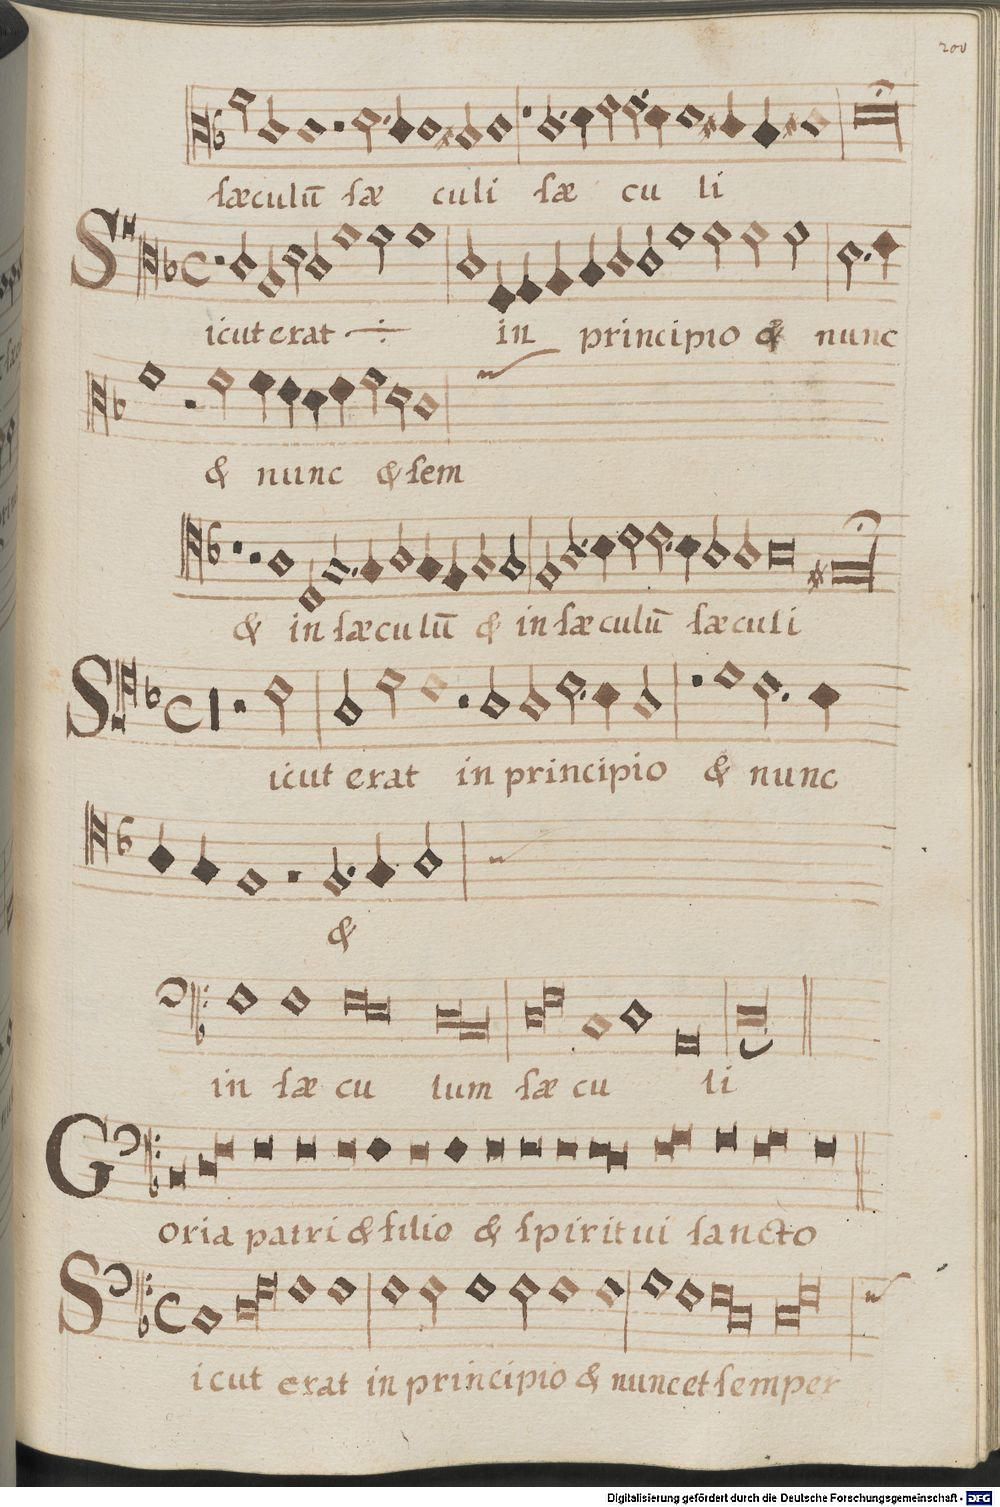 200
sæculū sæ culi sæ cu li
Sicut erat in principio & nunc
& nunc & sem
& in sæculū & in sæculū sæculi
Sicut erat in principio & nunc
&
in sæ cu lum sæ cu li
Goria patri & filio & spiritui sancto
Sicut erat in principio & nunc et semper
Digitalisierung gefördert durch die Deutsche Forschungsgemeinschaft - DFG